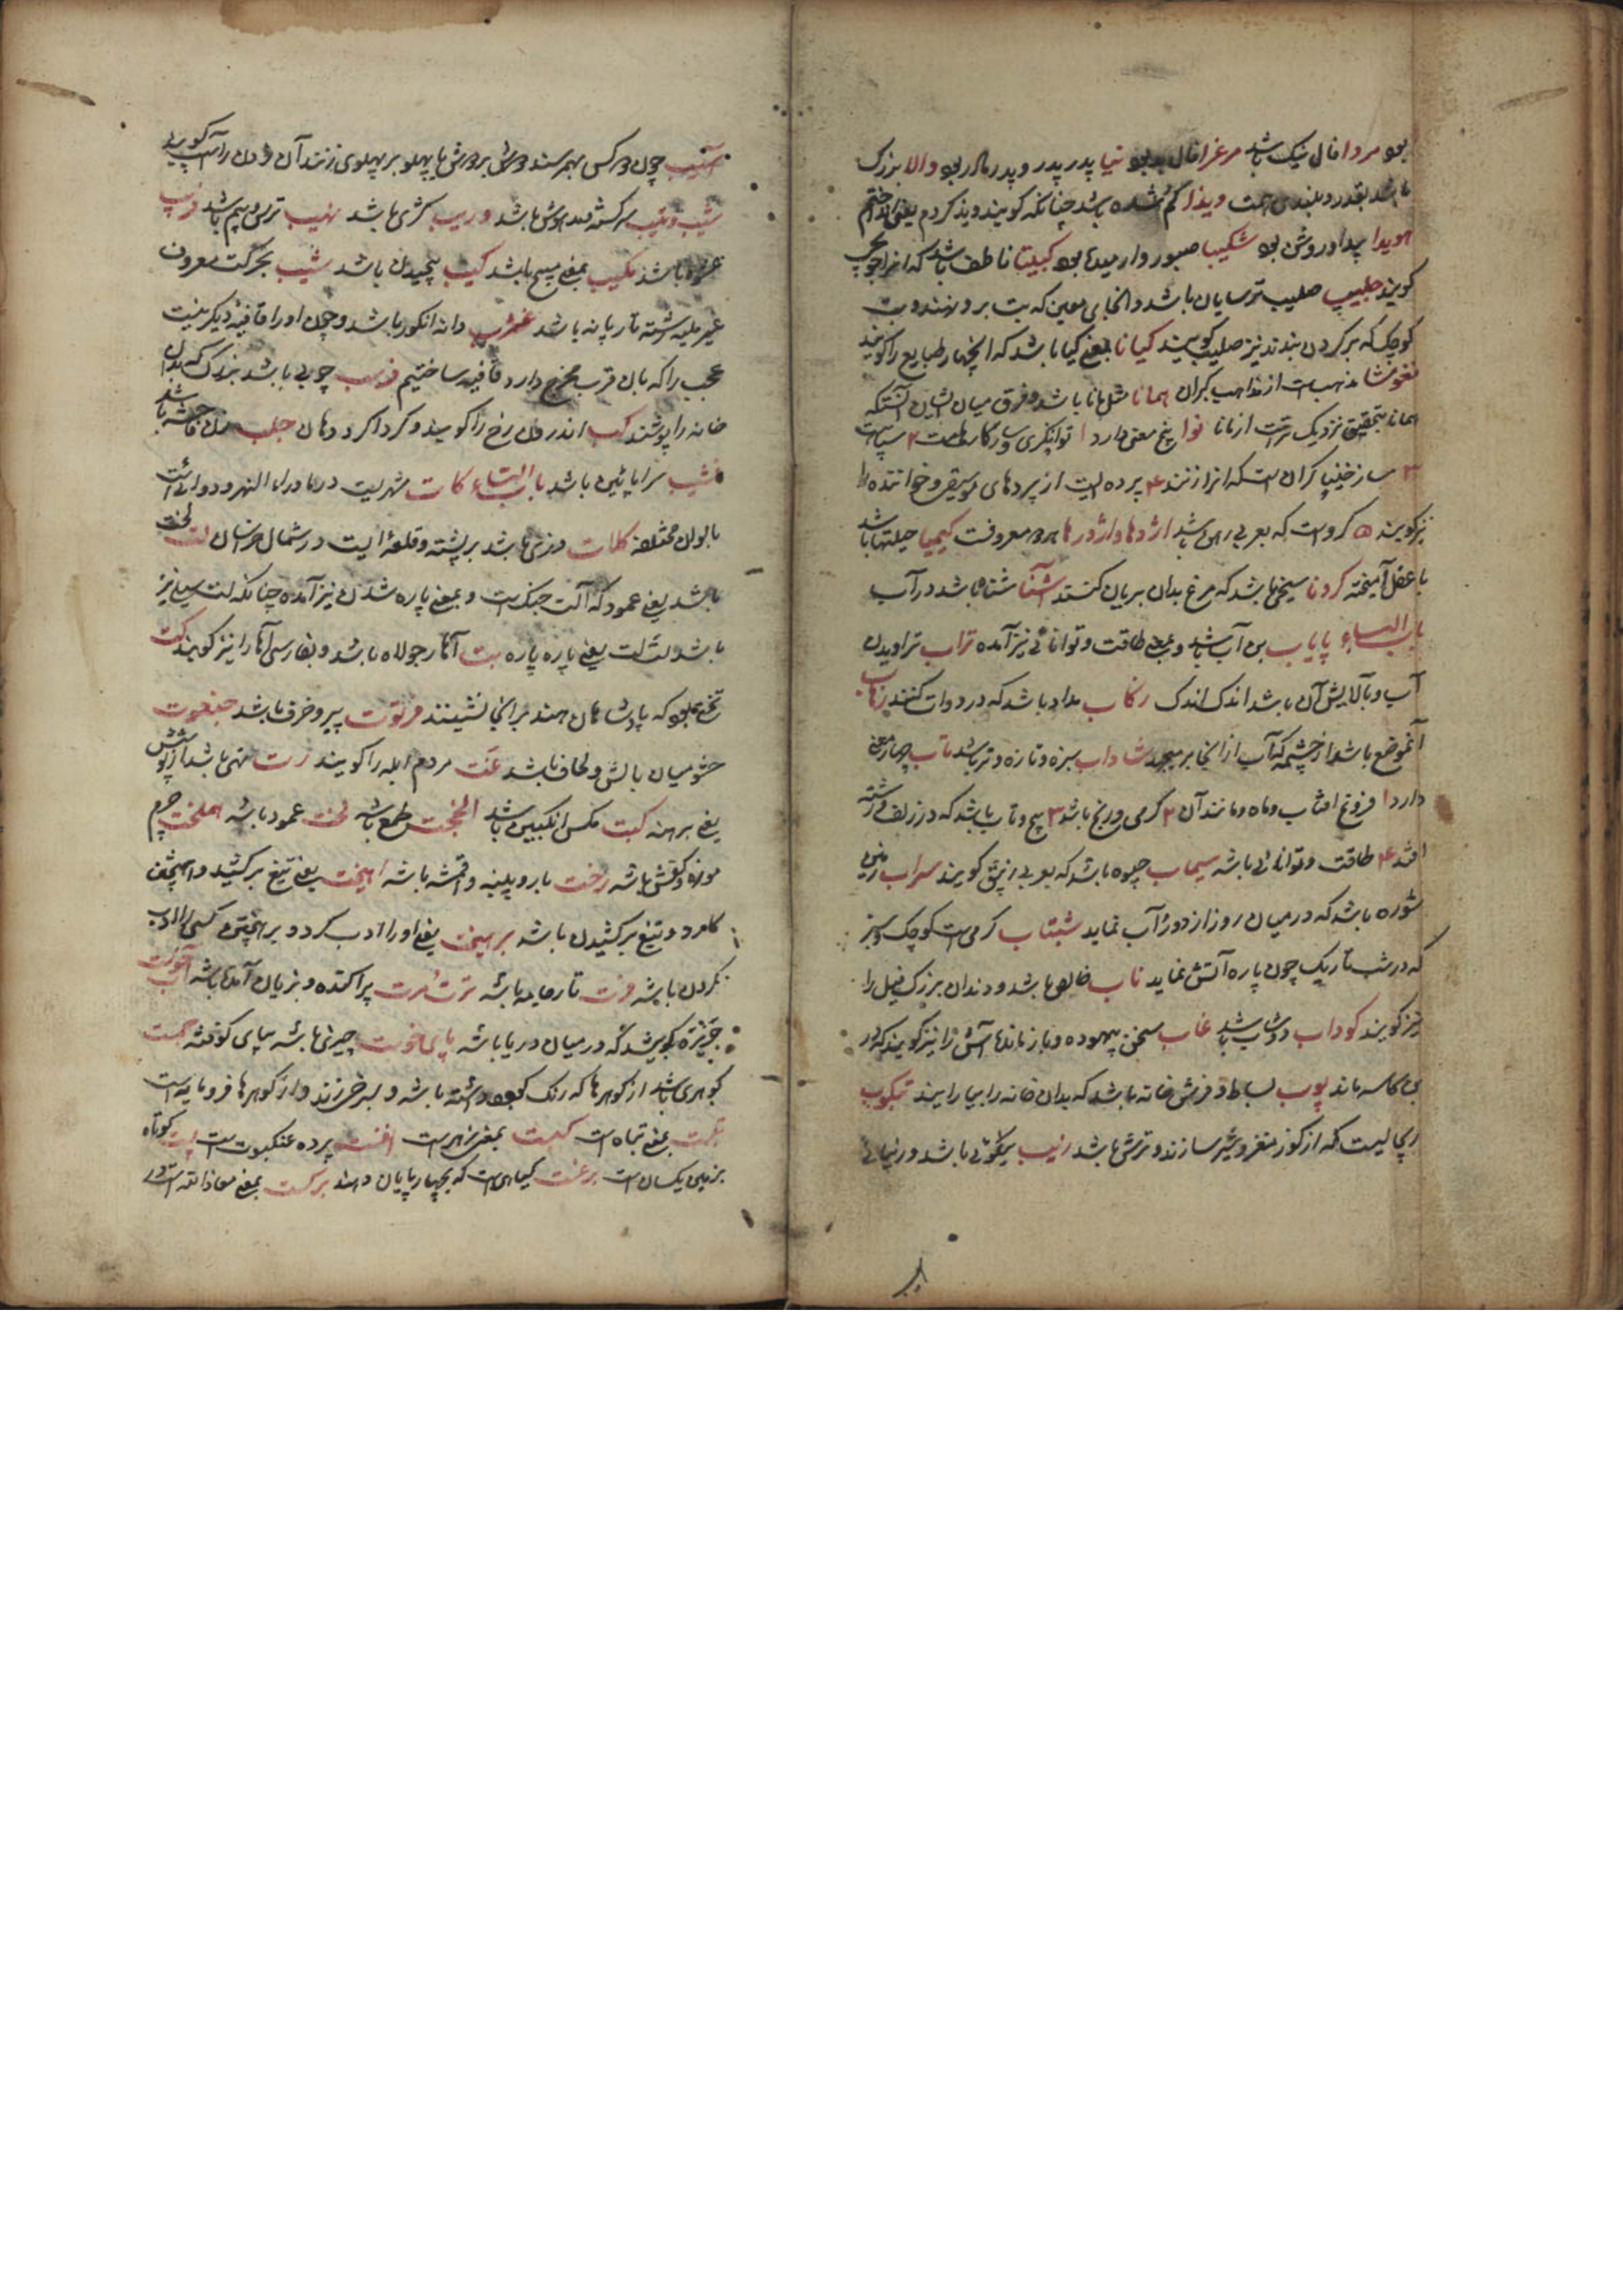 بود مردا فال نیک باشد مرغوا فال بد بود نیا پدر پدر و پدر مادر بود والا بزرگ
باشد بقدر و بلندی همت ویذا کم شده باشد چنانکه کویند ویذ کردم یعنی
هویدا پیدا و روشن بود شکیبا صبور و آرمیده بود کبیتا ناطف باشد که انرا
کویند جلیپ صلیب ترسایان باشد و انجای معین که بت برو نهند و بت
کوچک که بر کردن بندند نیز صلیب کویند کیانا بمعنی کیا باشد که انچهار طبایع را کویند
نغوشا مذهبست از مذاهب کبران همانا مثل مانا باشد و فرق میان ایشان آنستکه
همانا بتحقیق نزدیک ترست از مانا نوا پنج معنی دارد ۱ توانکری و ساز کار ۲ سپاهست
۳ ساز خنیاکران است که انرا زنند ۴ پرده ایست از پردهای موسیقی و خواننده را
نیز کویند ۵ کروست که بعربی رهن باشد اژدها و اژدرها هر دو معروفست کیمیا حیلتها باشد
با عقل آمیخته کردنا سیخی باشد که مرغ بدان بریان کنند آشنا شناه باشد در آب
باب الباء پایاب بن آب باشد و بمعنی طاقت و توانائی نیز آمده تراب تراویدن
آب و پالایش آن باشد اندک اندک زکاب مداد باشد که در دوات کنند زهاب
آنموضع باشد از چشمه که آب از انجا بر میجهد شاداب سبزه و تازه و تر باشد تاب چهار معنی
دارد ۱ فروغ افتاب و ماه و مانند آن ۲ کرمی و رنج باشد ۳ پیچ و تاب باشد که در زلف و رشته
افتد ۴ طاقت و توانائی باشد سیماب جیوه باشد که بعربی زیبق کویند سراب زمین
شوره باشد که در میان روز از دور آب نماید شبتاب کرمی است کوچک و سبز
که در شب تاریک چون پاره آتش نماید ناب خالص باشد و دندان بزرگ فیل را
نیز کویند کوداب دوشاب باشد غاب سخن بیهوده و باز مانده آش را نیز کویند که در
بن کاسه ماند بوب بساط و فرش خانه باشد که بدان خانه را بیارایند تبکوب
ریچالیست که از کوز مغز و شیر سازند و ترش باشد زیب نیکوئی باشد و زیبائی
آسیب چون دو کس بهم رسند و دوش بر دوش یا پهلو بر پهلوی زنند آن زدن را آسیب کویند
شیب و تیب سرکشته و مدهوش باشد وریب کژی باشد نهیب ترس و بیم باشد فریب
غرور باشد مکیب بمعنی مپیچ باشد کیب پیچیدن باشد شیب بحرکت معروف
غیر ملیه رشته تازیانه باشد غژب دانه انکور باشد و چون اورا قافیه دیکر نیست
عجب را که بآن قرب مخرج دارد قافیه ساختیم فرسب چوبی باشد بزرگ که بدان
خانه را پوشند کب اندرون رخ را کویند و کرداکرد دهان جلب زن فاحشه باشد
نشیب سراپائین باشد باب التاء کات شهریست در ماوراء النهر و دوائیست
بالوان مختلفه کلات دزی باشد بر پشته و قلعه ایست در شمال خراسان لت لخت
باشد یعنی عمود که آلت جنکست و بمعنی پاره شدن نیز آمده چنانکه لت سیلی نیز
باشد و لت لت یعنی پاره پاره بت آهار جولاه باشد و بفارسی آهار را نیز کویند کت
تختی بود که پادشاهان هند بر انجا نشینند فرتوت پیر و خرف باشد جغبوت
حشو میان بالش و لحاف باشد غت مردم ابله را کویند رت تهی باشد از پوشش
یعنی برهنه کبت مکس انکبین باشد الفخت طمع باشد لخت عمود باشد هملخت چرم
موزه و کفش باشد رخت بار و بنه و اقمشه باشد اهیخت یعنی تیغ برکشید و اهیختن
کارد و تیغ برکشیدن باشد برهیخت یعنی اورا ادب کرد و برهیختن کسی را ادب
کردن باشد فرت تار جامه باشد ترت مرت پراکنده و بزیان آمده باشد آبخوست
جزیره کویند که در میان دریا باشد پای خوست چیزی باشد بپای کوفته جمست
کوهری باشد از کوهرها که رنک کبود داشته باشد و بسرخی زند و از کوهرها فرومایه است
تکست بمعنی تباه است کست بمعنی زهرست افنست پرده عنکبوتست پست کوتاه
بزمین یکسان است برغست کیاهی است که بچهارپایان دهند برکست بمعنی معاذ الله است